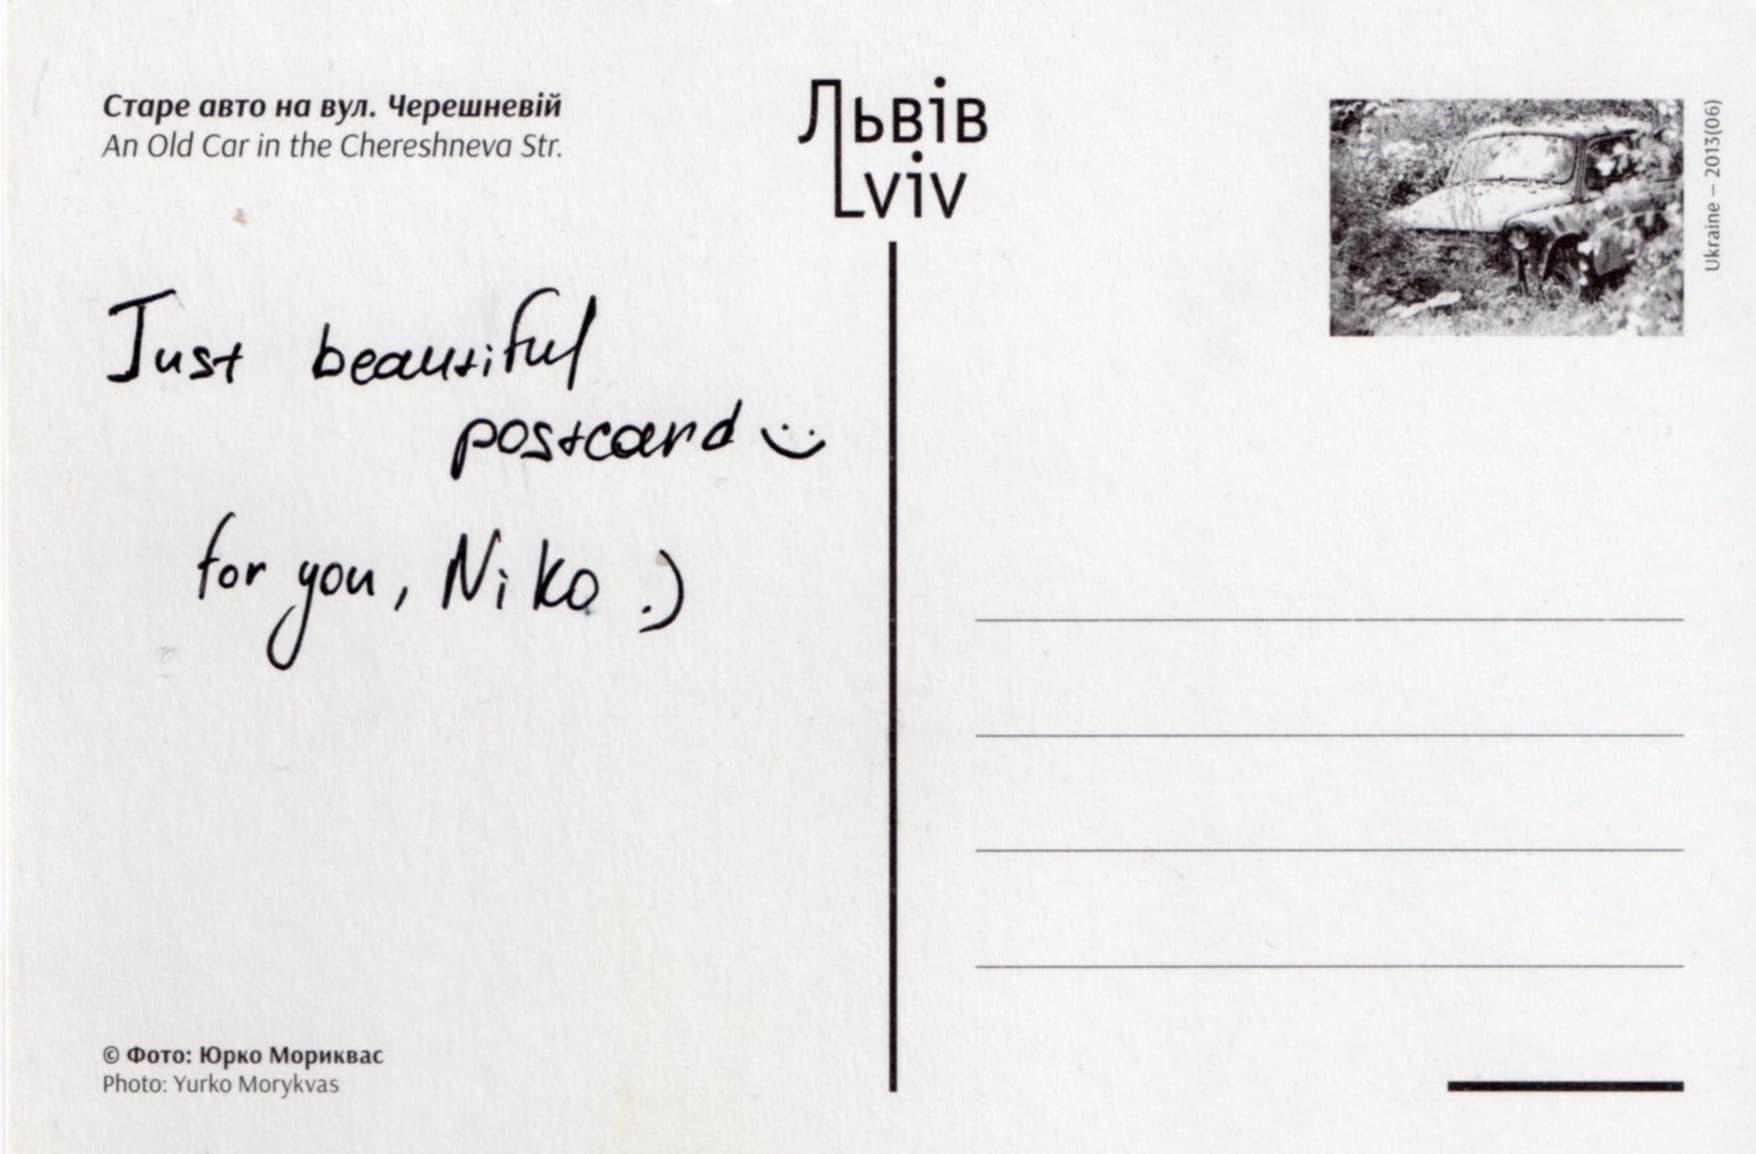 Старе авто на вул. Черешневій
An Old Car in the Chereshneva Str.
Just beautiful
postcard
for you, Niko :)
© Фото: Юрко Мориквас
Photo: Yurko Morykvas
Львів
Lviv
Ukraine – 2013(06)